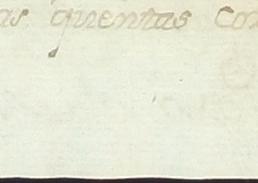 as quentas con